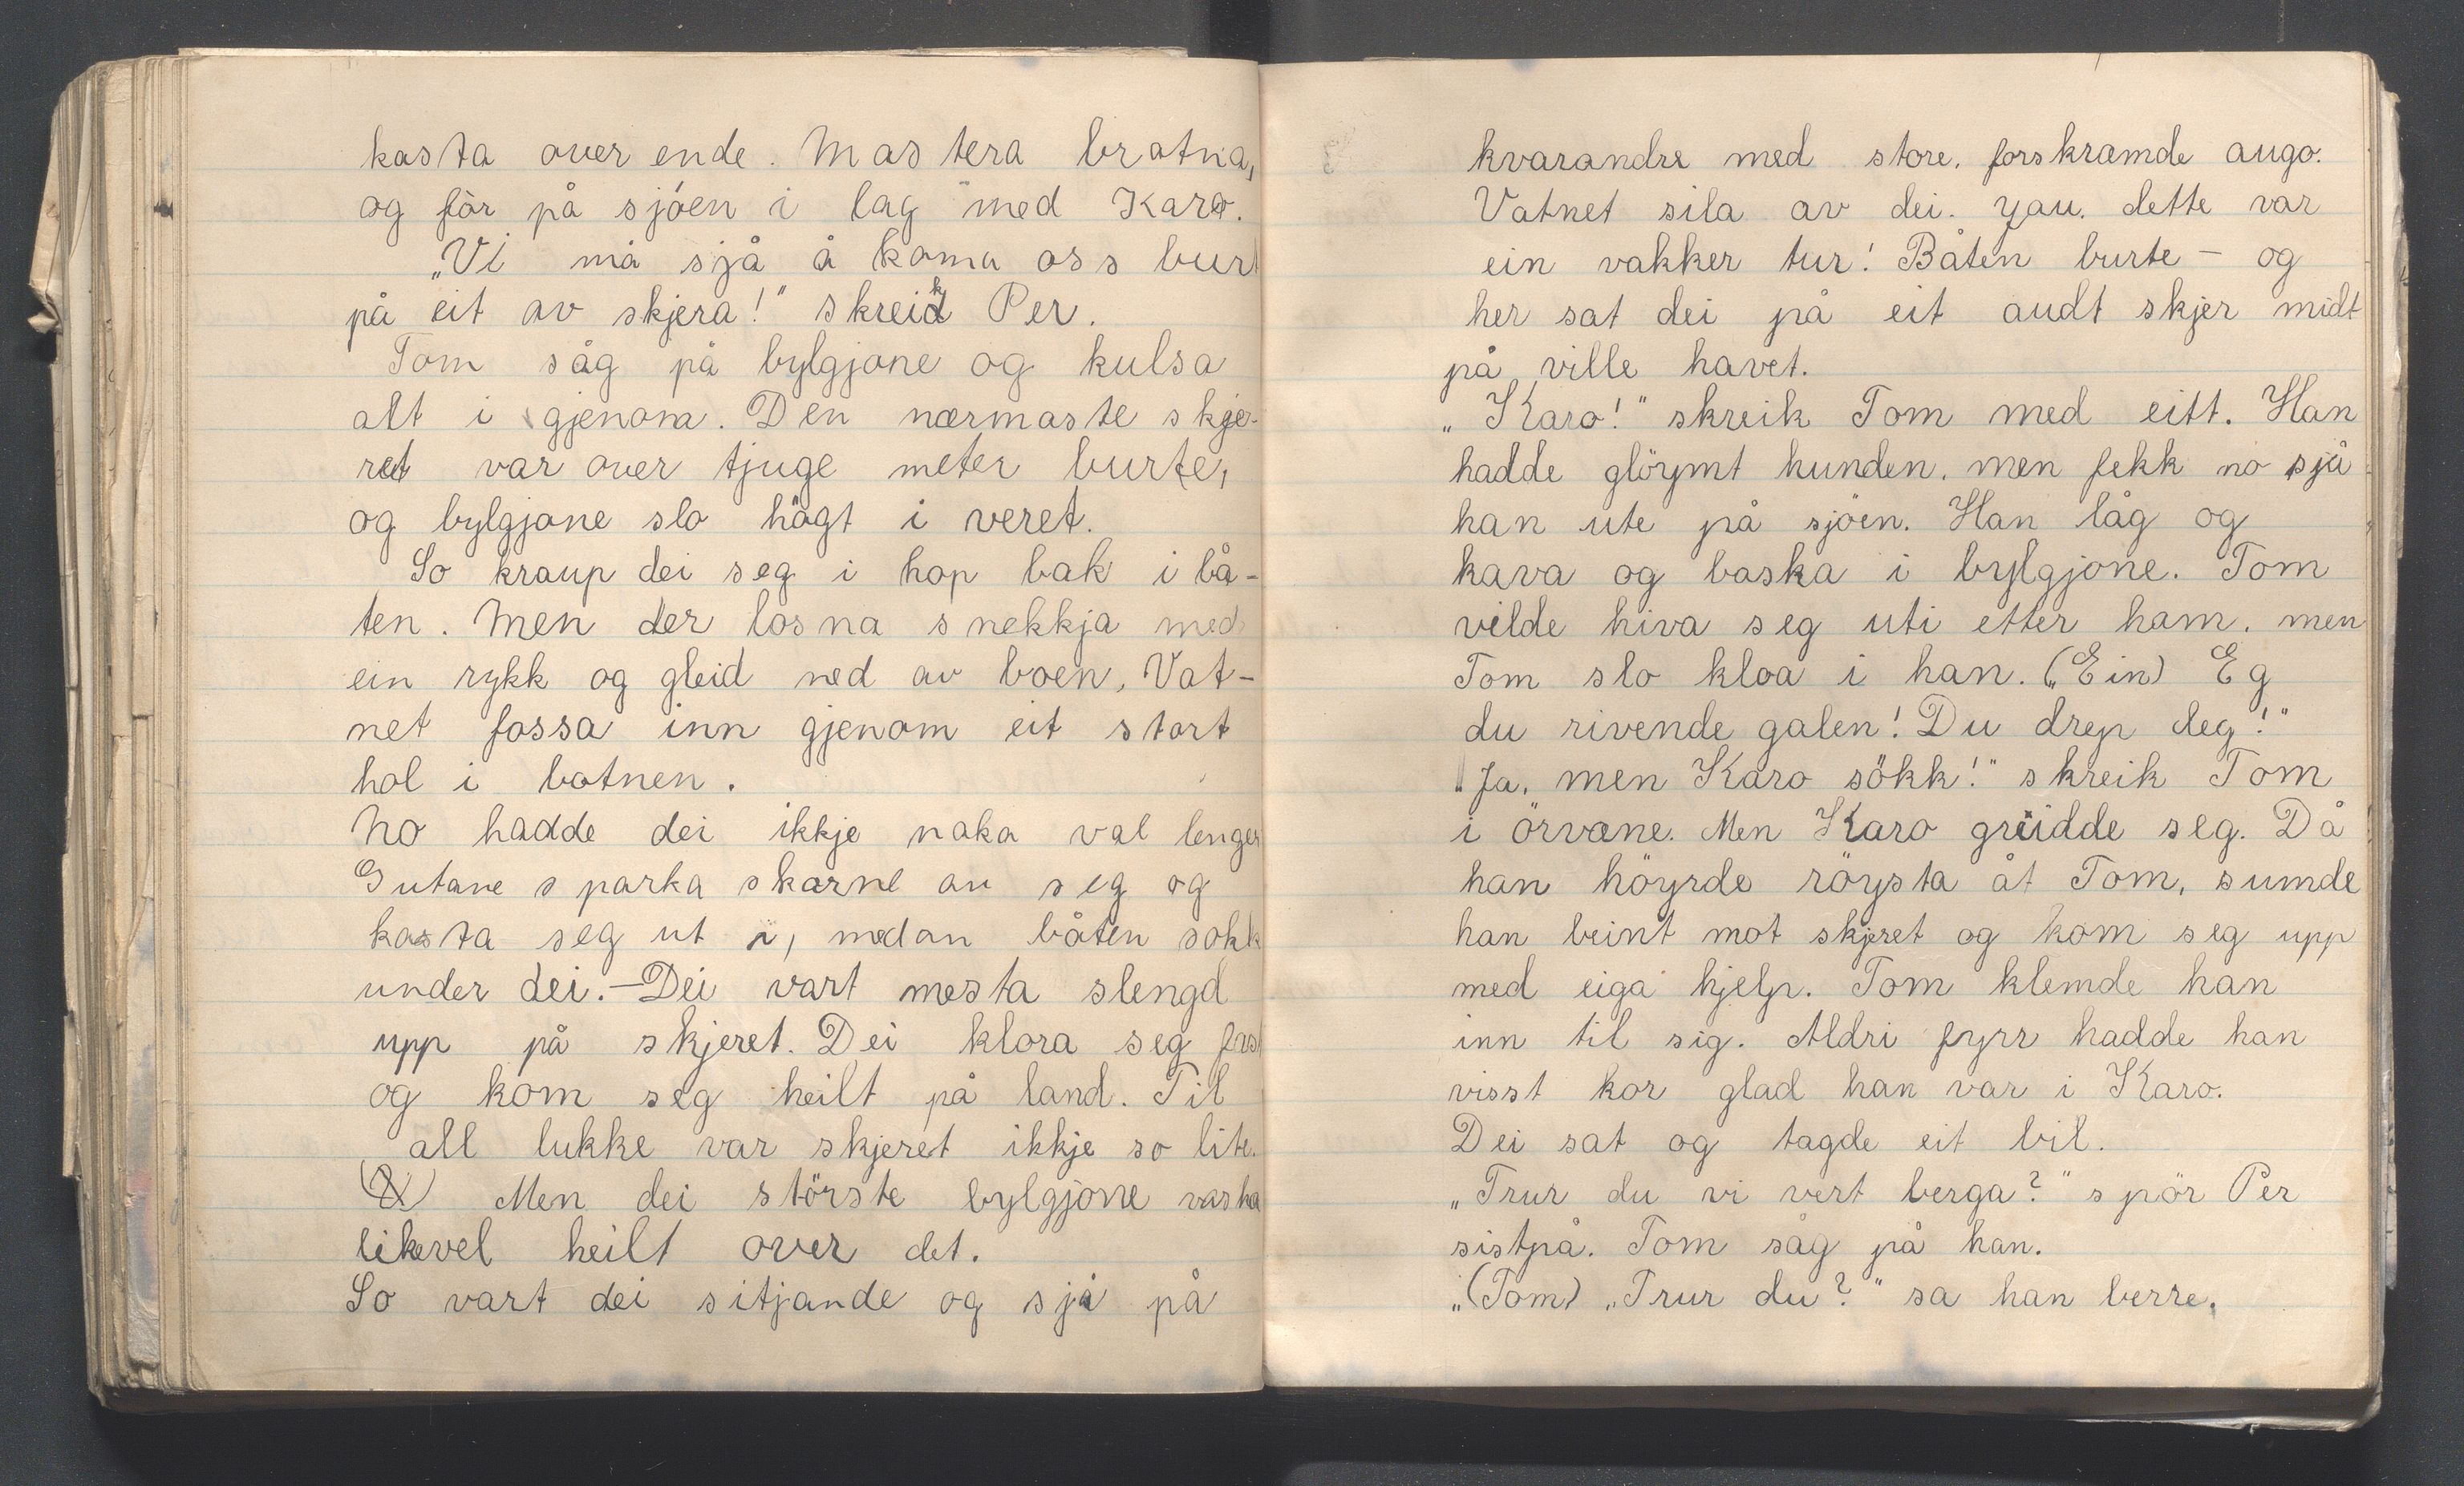 kasta over ende. Mastera bratna,
og fór på sjóen i lag med Karo.
„Vi må sjå å koma oss burt
på eit av skjera!" skreik Per.
Tom såg på bylgjone og kulsa
alt i gjenom. Den nærmaste skje-
ret var over tjuge meter burte,
og bylgjone slo högt i veret.
So kraup dei seg i hop bak i bå-
ten. Men der losna snekkja med
ein rykk og gleid ned av boen, Vat-
net fossa inn gjenom eit stort
hol i botnen.
No hadde dei ikkje noka val lenger
Gutane sparka skorne av seg og
kasta seg ut i, medan båten sokk
under dei.—Dei vart mesta slengd
upp på skjeret. Dei klora seg fast
og kom seg heilt på land. Til
all lukke var skjeret ikkje so lite.
Men dei störste bylgjone vaska
likevel heilt over det.
So vart dei sitjande og sjå på
kvarandre med store, forskræmde augo.
Vatnet sila av dei. Jau, dette var
ein vakker tur! Båten burte — og
her sat dei på eit audt skjer midt
på ville havet.
„Karo!" skreik Tom med eitt. Han
hadde glöymt hunden, men fekk no sjå
han ute på sjöen. Han låg og
kava og baska i bylgjone. Tom
vilde hiva seg uti etter ham, men
Tom slo kloa i han. („Ein) Eg
du rivende galen! Du drep deg!"
„Ja, men Karo sökk!" skreik Tom
i örvæne. Men Karo greidde seg. Då
han höyrde röysta åt Tom, sumde
han beint mot skjeret og kom seg upp
med eiga hjelp. Tom klemde han
inn til sig. Aldri fyrr hadde han
visst kor glad han var i Karo.
Dei sat og tagde eit bil.
„Trur du vi vert berga?" spör Per
sistpå. Tom såg på han.
„(Tom) „Trur du?" sa han berre.